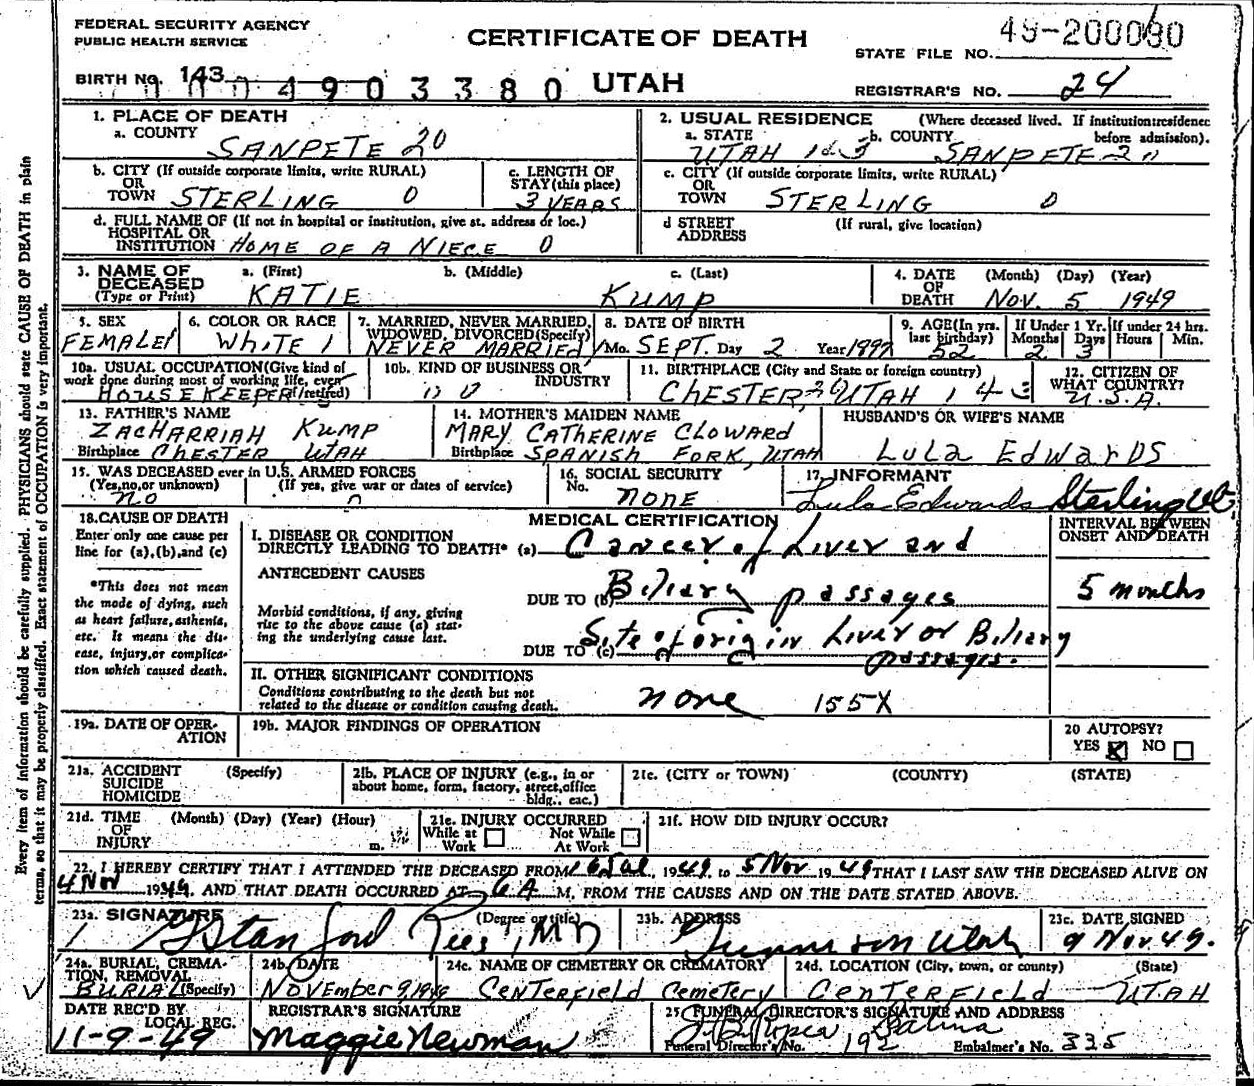 FEDERAL SECURITY AGENCY
PUBLIC HEALTH SERVICE
CERTIFICATE OF DEATH
49-200080
STATE FILE NO.
BIRTH NO. 143
0004903380
UTAH
REGISTRAR'S NO. 24
1. PLACE OF DEATH
a. COUNTY
SANPETE 20
2. USUAL RESIDENCE (Where deceased lived. If institution: residence before admission).
a. STATE b. COUNTY
UTAH SANPETE
b. CITY (If outside corporate limits, write RURAL)
OR
TOWN STERLING 0
c. LENGTH OF STAY (this place)
3 YEARS
c. CITY (If outside corporate limits, write RURAL)
OR
TOWN STERLING 0
d. FULL NAME OF (If not in hospital or institution, give st. address or loc.)
HOSPITAL OR
INSTITUTION HOME OF A NIECE 0
d STREET ADDRESS (If rural, give location)
3. NAME OF DECEASED (Type or Print)
a. (First) b. (Middle) c. (Last)
KATIE KUMP
4. DATE OF DEATH (Month) (Day) (Year)
NOV. 5 1949
5. SEX
FEMALE
6. COLOR OR RACE
WHITE 1
7. MARRIED, NEVER MARRIED, WIDOWED, DIVORCED (Specify)
NEVER MARRIED
8. DATE OF BIRTH
Mo. SEPT. Day 2 Year 1897
9. AGE (In yrs. last birthday)
52
If Under 1 Yr. Months Days
2 3
If under 24 hrs. Hours Min.
10a. USUAL OCCUPATION (Give kind of work done during most of working life, even if retired)
HOUSEKEEPER
10b. KIND OF BUSINESS OR INDUSTRY
11. BIRTHPLACE (City and State or foreign country)
CHESTER, UTAH
12. CITIZEN OF WHAT COUNTRY?
U.S.A.
13. FATHER'S NAME
ZACHARRIAH KUMP
Birthplace CHESTER UTAH
14. MOTHER'S MAIDEN NAME
MARY CATHERINE CLOWARD
Birthplace SPANISH FORK, UTAH
HUSBAND'S OR WIFE'S NAME
LULA EDWARDS
15. WAS DECEASED ever in U.S. ARMED FORCES
(Yes, no, or unknown) (If yes, give war or dates of service)
NO
16. SOCIAL SECURITY No.
NONE
17. INFORMANT
Lula Edwards Sterling Ut.
18. CAUSE OF DEATH
Enter only one cause per line for (a), (b), and (c)
*This does not mean the mode of dying, such as heart failure, asthenia, etc. It means the disease, injury, or complication which caused death.
MEDICAL CERTIFICATION
INTERVAL BETWEEN ONSET AND DEATH
I. DISEASE OR CONDITION
DIRECTLY LEADING TO DEATH* (a) Cancer of Liver and
ANTECEDENT CAUSES
Morbid conditions, if any, giving rise to the above cause (a) stating the underlying cause last.
DUE TO (b) Biliary passages
5 months
DUE TO (c) Site of origin Liver or Biliary
passages.
II. OTHER SIGNIFICANT CONDITIONS
Conditions contributing to the death but not related to the disease or condition causing death.
none 155X
19a. DATE OF OPERATION
19b. MAJOR FINDINGS OF OPERATION
20 AUTOPSY?
YES NO
21a. ACCIDENT SUICIDE HOMICIDE (Specify)
21b. PLACE OF INJURY (e.g., in or about home, form, factory, street, office bldg., eac.)
21c. (CITY or TOWN) (COUNTY) (STATE)
21d. TIME OF INJURY (Month) (Day) (Year) (Hour)
m.
21e. INJURY OCCURRED
While at Work Not While At Work
21f. HOW DID INJURY OCCUR?
22. I HEREBY CERTIFY THAT I ATTENDED THE DECEASED FROM 1949, to 5 Nov 1949 THAT I LAST SAW THE DECEASED ALIVE ON
4 Nov 1949, AND THAT DEATH OCCURRED AT 6 A M, FROM THE CAUSES AND ON THE DATE STATED ABOVE.
23a. SIGNATURE (Degree or title)
G Stanford Rees, MD
23b. ADDRESS
Gunnison Utah
23c. DATE SIGNED
9 Nov 49.
24a. BURIAL, CREMATION, REMOVAL (Specify)
BURIAL
24b. DATE
NOVEMBER 9, 1949
24c. NAME OF CEMETERY OR CREMATORY
CENTERFIELD CEMETERY
24d. LOCATION (City, town, or county) (State)
CENTERFIELD UTAH
DATE REC'D BY LOCAL REG.
11-9-49
REGISTRAR'S SIGNATURE
Maggie Newman
25 FUNERAL DIRECTOR'S SIGNATURE AND ADDRESS
Salina
Funeral Director's No. 192 Embalmer's No. 335
Every item of information should be carefully supplied. PHYSICIANS should state CAUSE OF DEATH in plain
terms, so that it may be properly classified. Exact statement of OCCUPATION is very important.